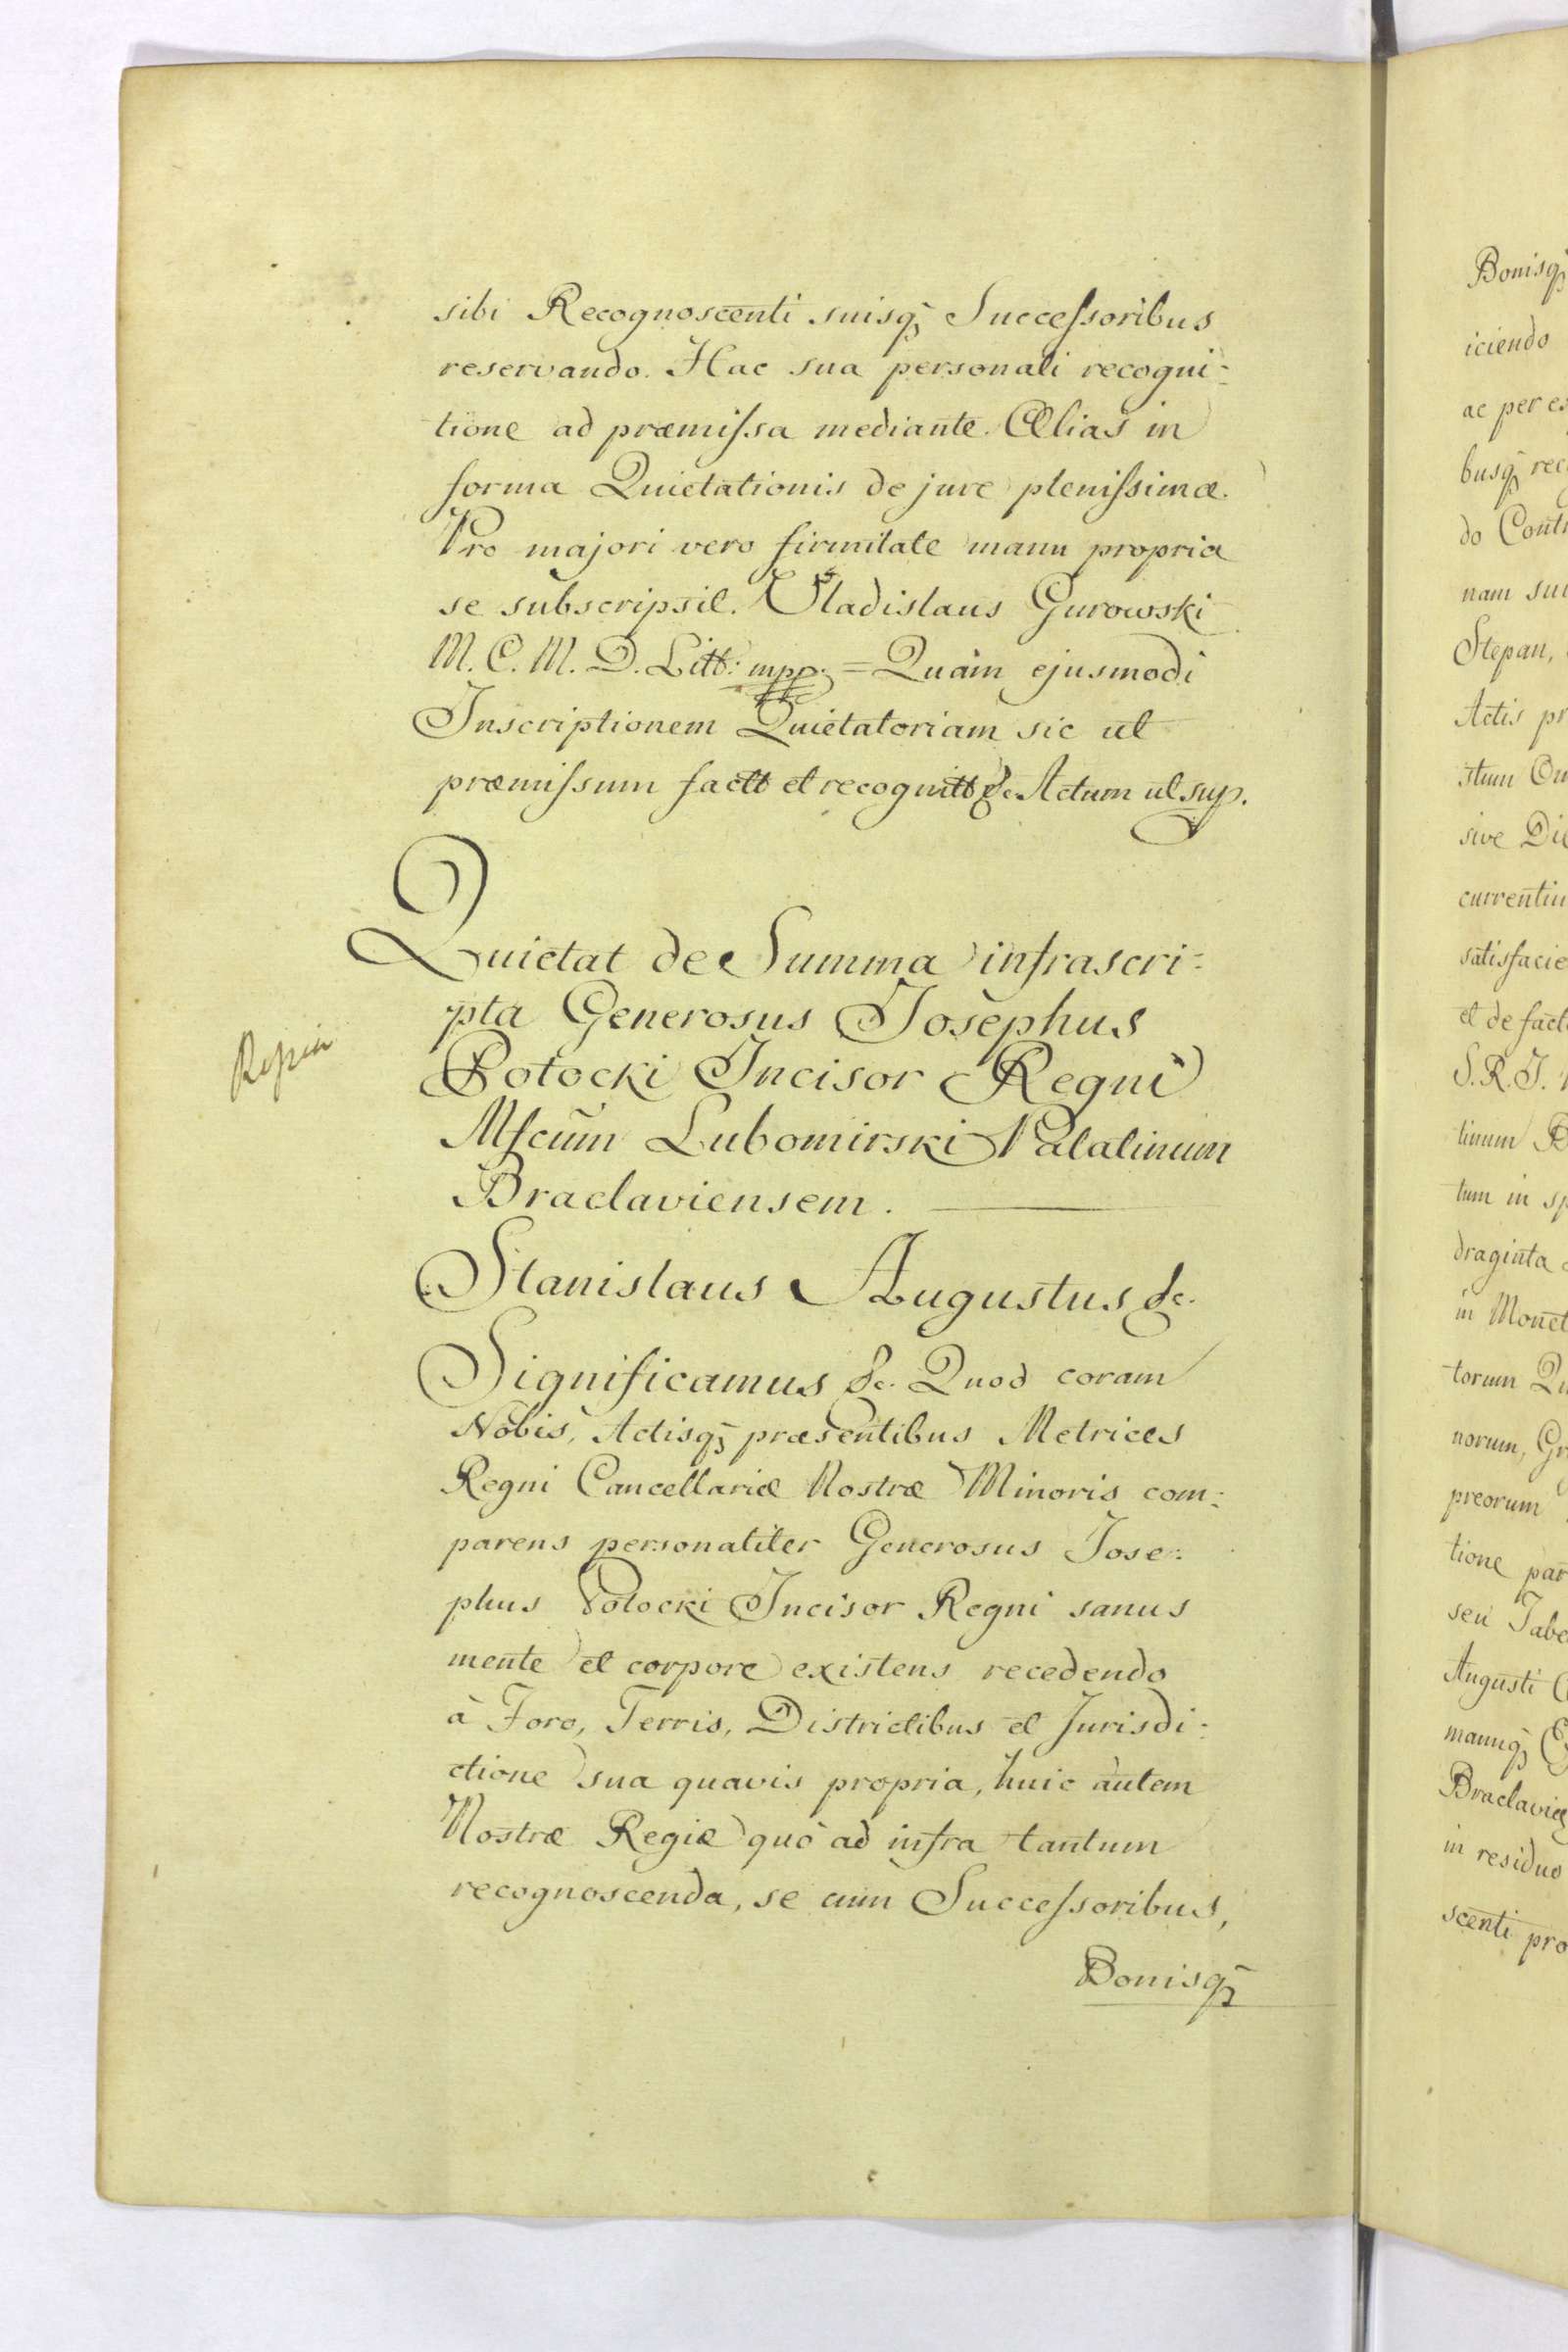 sibi Recognoscenti suisq; Succeſsoribus
reservando. Hac sua personali recogni:
tione ad præmiſsa mediante. Alias in
forma Quietationis de jure pleniſsimæ.
Pro majori vero firmitate manu propria
se subscripsit. Vladislaus Gurowski
M. C. M. D. Litt: mpp. = Quam ejusmodi
Inscriptionem Quietatoriam sic ut
præmiſsum factt et recognitt &c. Actum ut sup.
Quietat de Summa infrascri:
pta Generosus Josephus
Potocki Incisor Regni
Mſcum Lubomirski Palatinum
Braclaviensem.
Stanislaus Augustus &c.
Significamus &c. Quod coram
Nobis, Actisq; præsentibus Metrices
Regni Cancellariæ Nostræ Minoris com:
parens personaliter Generosus Jose:
phus Potocki Incisor Regni sanus
mente et corpore existens recedendo
à Foro, Terris, Districtibus et Jurisdi:
ctione sua quavis propria, huic autem
Nostræ Regiæ quò ad infra tantum
recognoscenda, se cum Succeſsoribus,
Bonisq;
Bonisq;
iciendo
ac per
busq; rec
do Cont
nam sui
Stepan,
Actis pr
sive
satisfacie
et de fact
S. R. I.
tinum
tum in sp
draginta
in Monet
torum
norum,
preorum
tione par
seu Tabe
Augusti
manuq;
Braclaviæ
in residuo
scenti pro